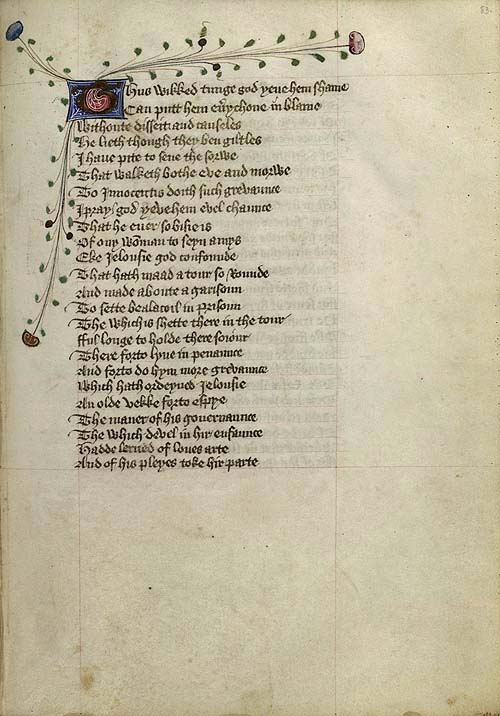 83.
Thus wikked tunge god yeue hem shame
Can putt hem euychone in blame
Withoute disseit and causeles
He lieth though they ben giltles
I haue pite to sene the sorwe
That walketh bothe eve and morwe
To Innocentis doith such grevaunce
I pray god yeve hem evel chaunce
That he euer so bisie is
Of ony womman to seyn amys
Eke Jelousie god confounde
That hath maad a tour so Rounde
And made aboute a garisoun
To sette bealacoil in prisoun
The which is shette there in the tour
fful longe to holde there soiour
There forto lyue in penaunce
And forto do hym more grevaunce
Which hath ordeyned Jelousie
An olde vekke forto espye
The maner of his gouernaunce
The which devel in hir enfaunce
Hadde lerned of loues arte
And of his pleyes toke hir parte